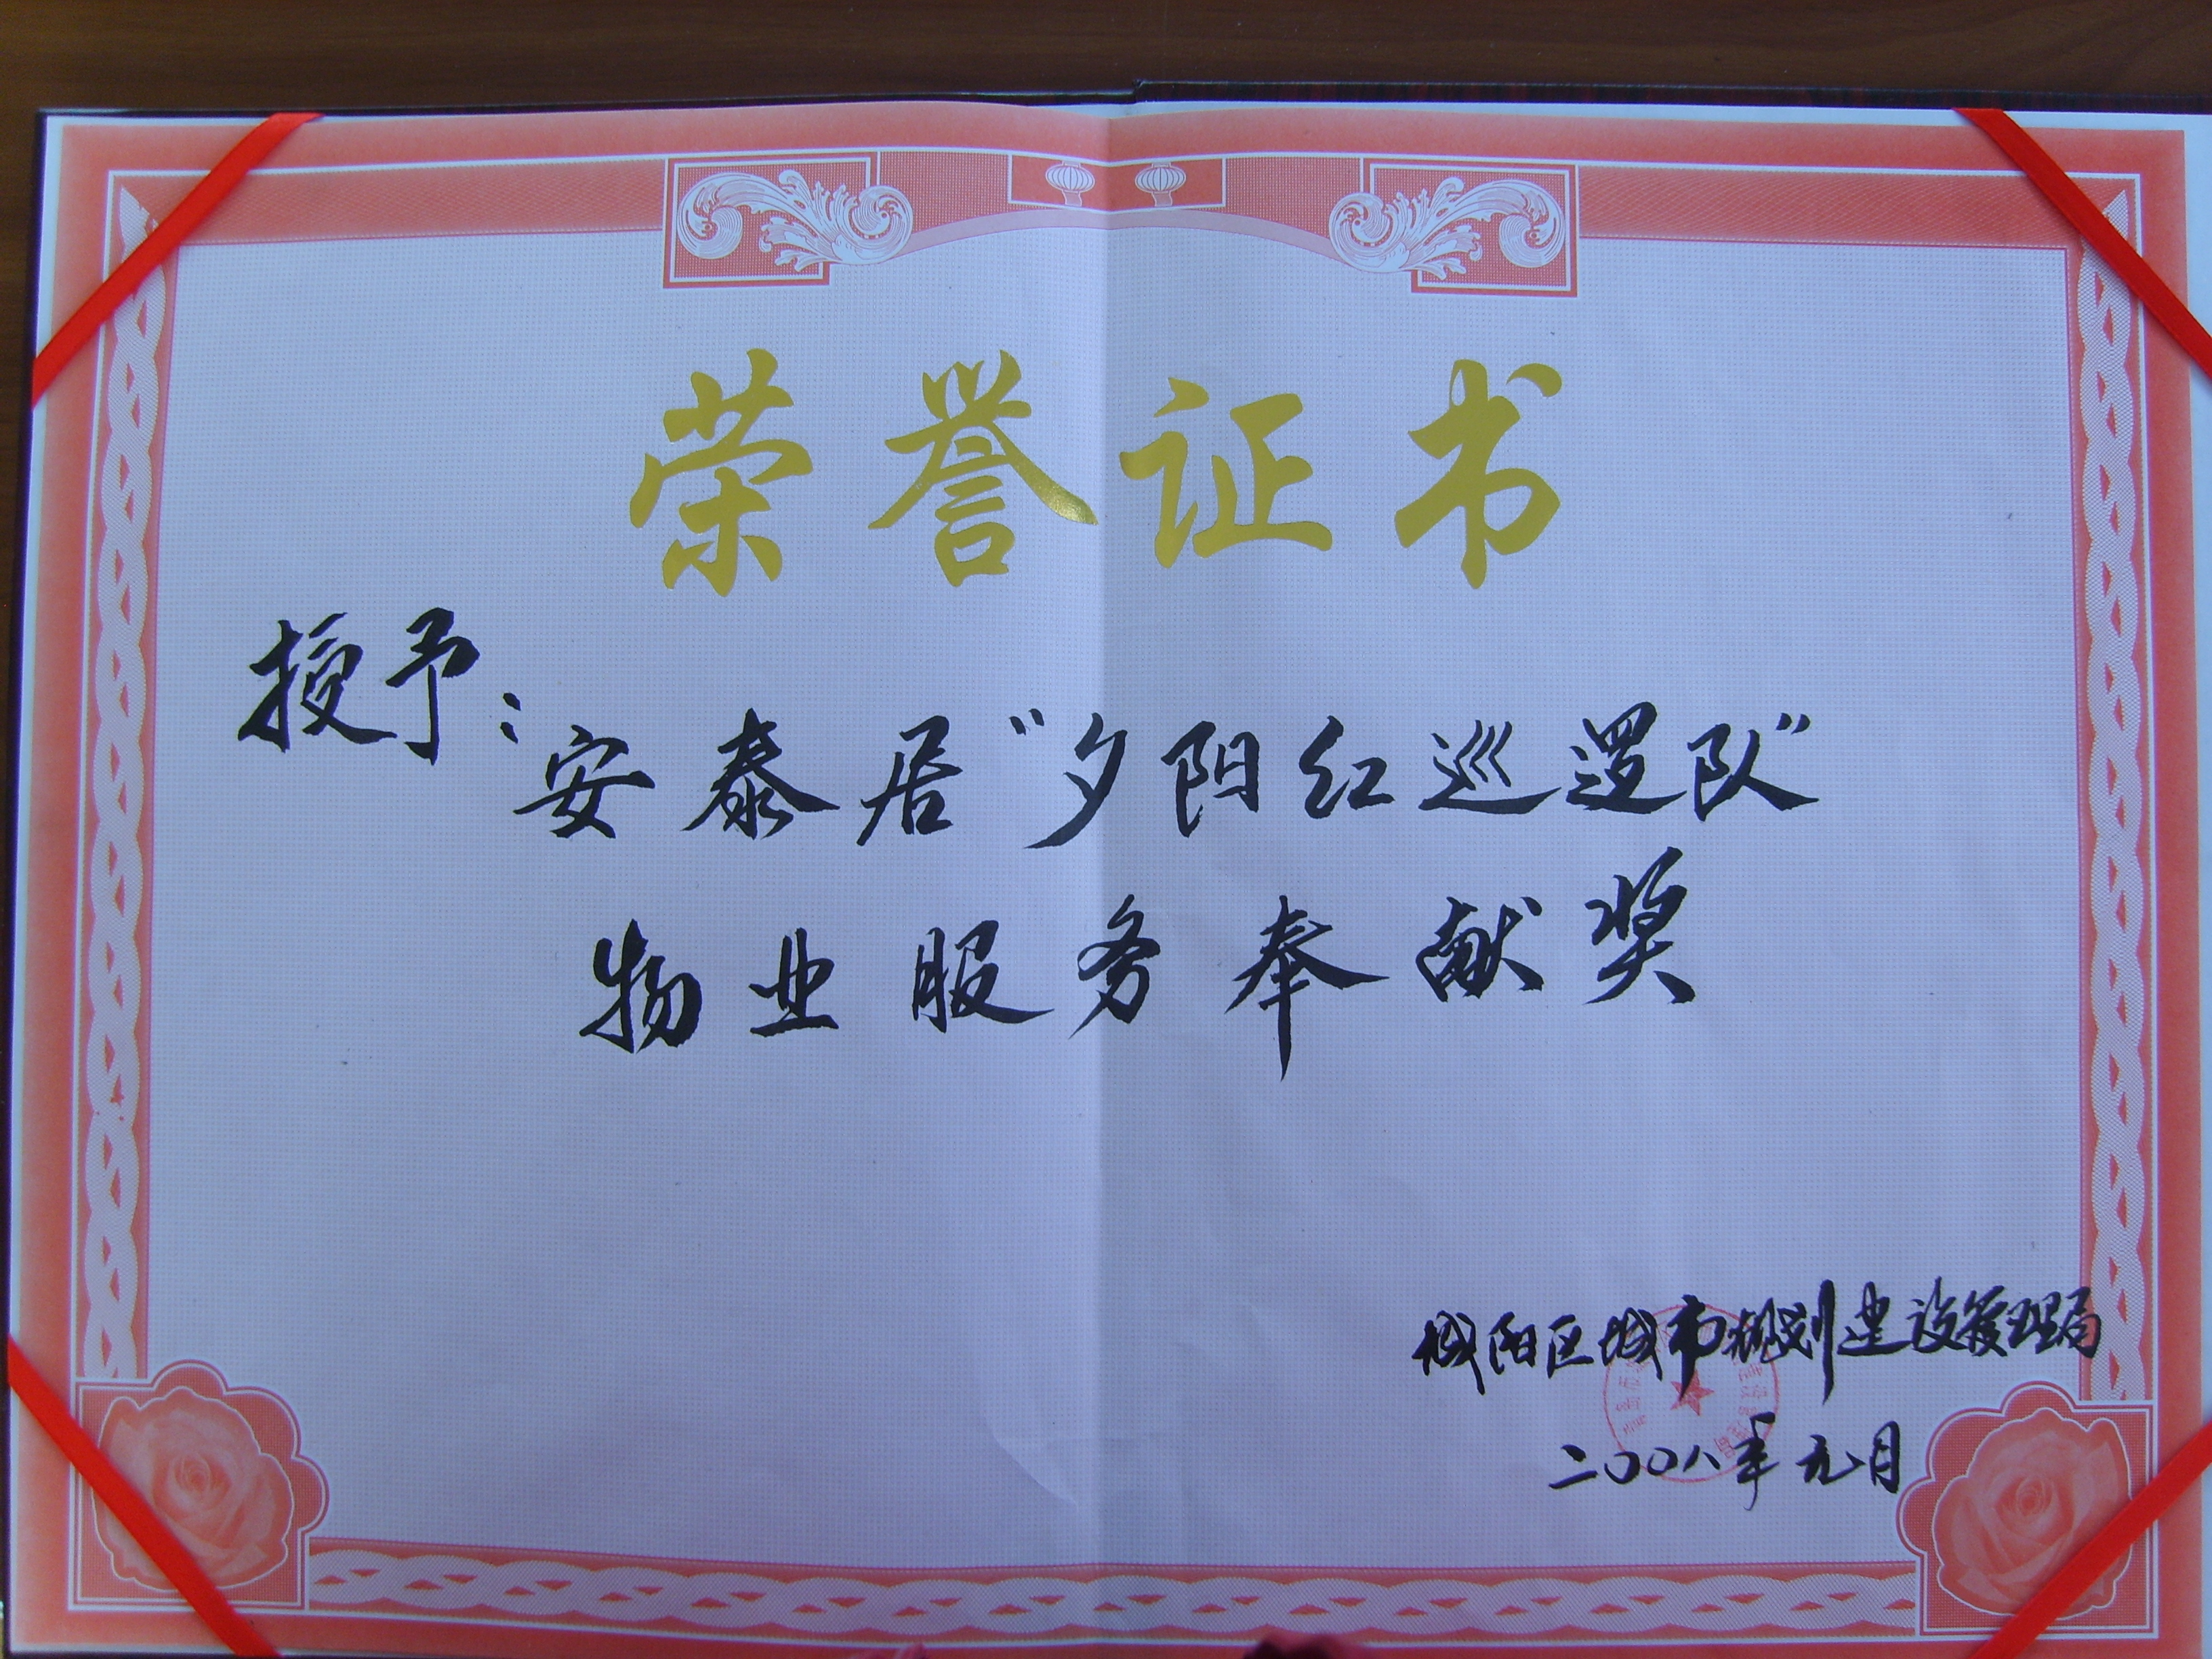 荣誉证书
授予：
安泰居“夕阳红巡逻队”
物业服务奉献奖
城阳区城市规划建设管理局
二〇〇八年元月